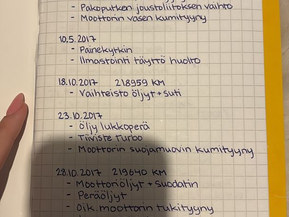 - Pakoputken joustoliitoksen vaihto
- Moottorin vasen kumityyny
10.5.2017
- Painekytkin
- Ilmastointi täyttö huolto
18.10.2017 218959 KM
- Vaihteisto öljyt + suti
23.10.2017
- Öljy lukkoperä
- Tiiviste turbo
- Moottorin suojamuovin kumityyny
28.10.2017 219640 KM
- Moottoriöljyt + suodatin
- Peräöljyt
- Oik. moottorin tukityyny